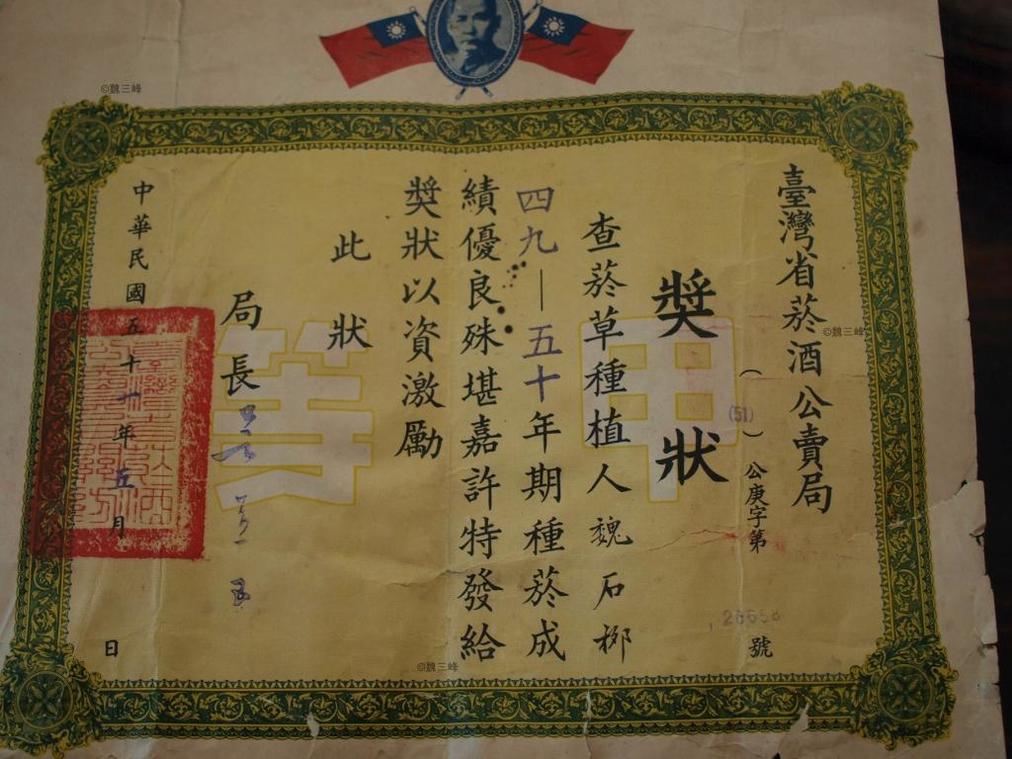 臺灣省菸酒公賣局
獎狀
(51)公庚字第
號
查菸草種植人魏石
四九—五十年期種菸成
績優良殊堪嘉許特發給
獎狀以資激勵
此狀
局長
中華民國五十年五月
日
甲等
©魏三峰
©魏三峰
©魏三峰